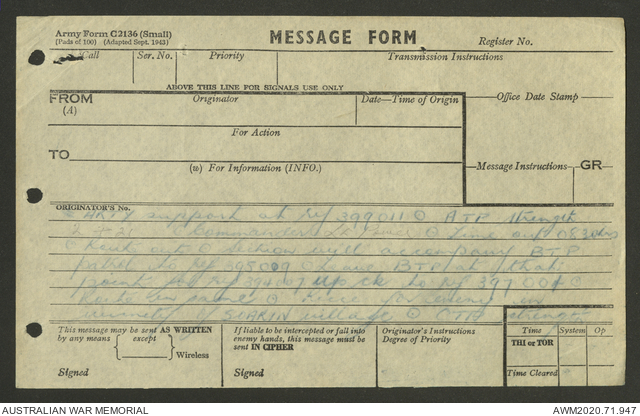 Army Form C2136 (Small)
(Pads of 100) (Adapted Sept. 1943)
MESSAGE FORM
Register No.
Call
Ser. No.
Priority
Transmission Instructions
ABOVE THIS LINE FOR SIGNALS USE ONLY
FROM
(A)
Originator
Date—Time of Origin
Office Date Stamp
For Action
TO
(w) For Information (INFO.)
Message Instructions
GR
ORIGINATOR'S No.
support at Ref 399011 O ATP strength
Commander O time out 0830 hrs
C Route out O section will accompany BTP
patrol to Ref 398009 O leave BTP at that
point Ref 394007 up ck to Ref 397004 C
Route in same O
village O OTP strength
This message may be sent AS WRITTEN
by any means
except
Wireless
Signed
If liable to be intercepted or fall into
enemy hands, this message must be
sent IN CIPHER
Signed
Originator's Instructions
Degree of Priority
Time
System
Op
THI or TOR
Time Cleared
AUSTRALIAN WAR MEMORIAL
AWM2020.71.947